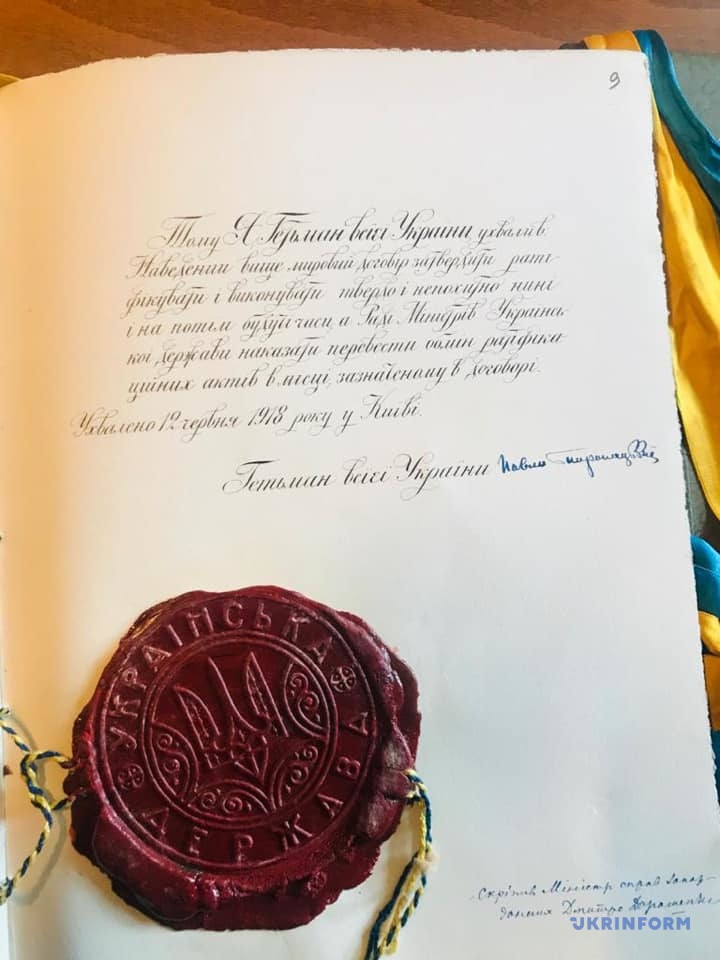 9
Тому Я Гетьман всієї України ухвалив:
Наведений вище мировий договір затвердити рати-
фікувати і виконувати твердо і непохитно нині
і на потім будучі часи, а Раді Міністрів Українсь-
кої Держави наказати перевести обмін ратифіка-
ційних актів в місці, зазначеному в договорі.
Ухвалено 12 червня 1918 року у Київі.
Гетьман всієї України Павло Скоропадський
УКРАЇНСЬКА
ДЕРЖАВА
Скріпив Міністр справ Закор-
донних Дмитро Дорошенко
UKRINFORM